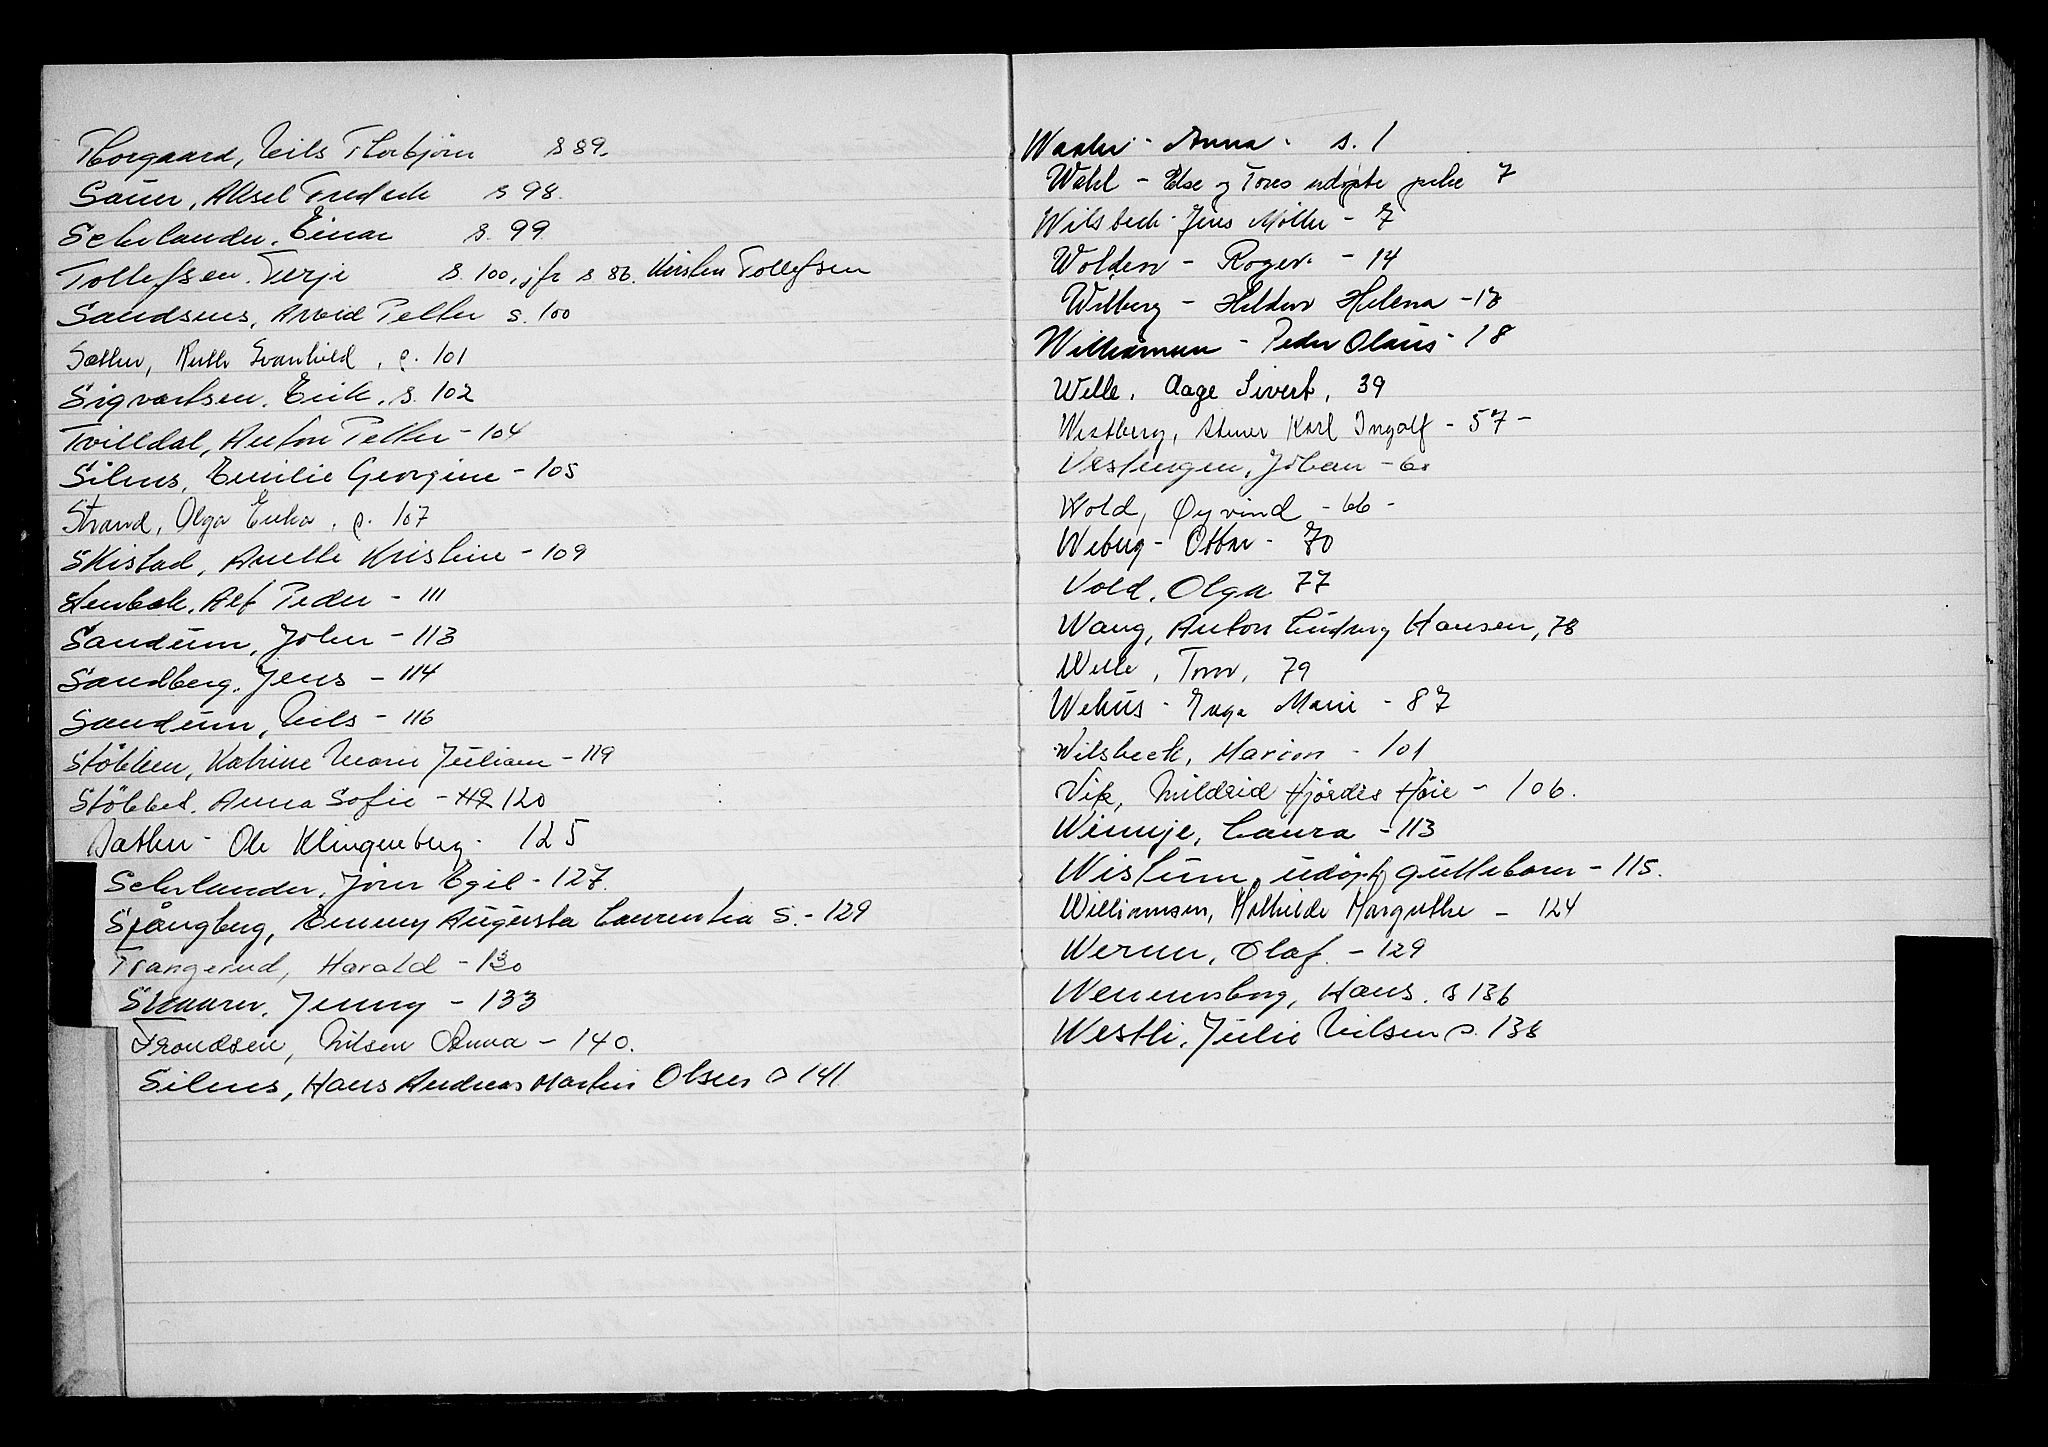 Thorgaard, Nils Thorbjörn s 89.
Sauer, Aksel Fredrik s 98.
Sehrlander, Einar s. 99
Tollefsen, Terje s. 100, jfr s 86. Kirsten Tollefsen
Sandsnes, Arvid Petter s. 100
Sæther, Ruth Svanhild, s. 101
Sigvartsen, Erik, s. 102
Tvilldal, Anton Petter - 104
Silnes, Emilie Georgine - 105
Strand, Olga Erika, s. 107
Skistad, Anette Kristine - 109
Stenbæk, Alf Peder - 111
Sandum, John - 113
Sandberg, Jens - 114
Sandum, Nils - 116
Stökken, Katrine Marie Juliane - 119
Stökket, Anna Sofie - 119 120
Sæther - Ole Klingenberg - 125
Sehrlander, Jörn Egil - 127.
Spångberg, Emmy Augusta Laurentia S. - 129
Trangerud, Harald - 130
Skaaren, Jenny - 133
Trondsen, Nilsen Anna - 140.
Silnes, Hans Andreas Martin Olsen s 141
Waaler - Anna - s. 1
Wahl - Else og Tores udøpte pike 7
Wilsbech - Jens Möller - 7
Wolden - Roger - 14
Wilberg - Helena - 18
Williamsen - Peder Olaus - 18
Welle, Aage Sivert, 39
Westberg, Karl Ingolf - 57 -
Vestengen, Johan - 60
Wold, Øyvind - 66 -
Weberg - Ottar - 70
Vold, Olga 77
Wang, Anton Ludvig Hansen, 78
Welle, Tom, 79
Wehus - Inga Marie - 87
Wilsbech, Marion - 101
Vik, Mildrid Hjördis Höie - 106.
Winnje, Laura - 113
Wislum, udöpt guttebarn - 115.
Williamsen, Mathilde Margrethe - 124
Werner, Olaf. - 129
Wennersborg, Hans. s 136
Westli, Julie Nilsen s. 138